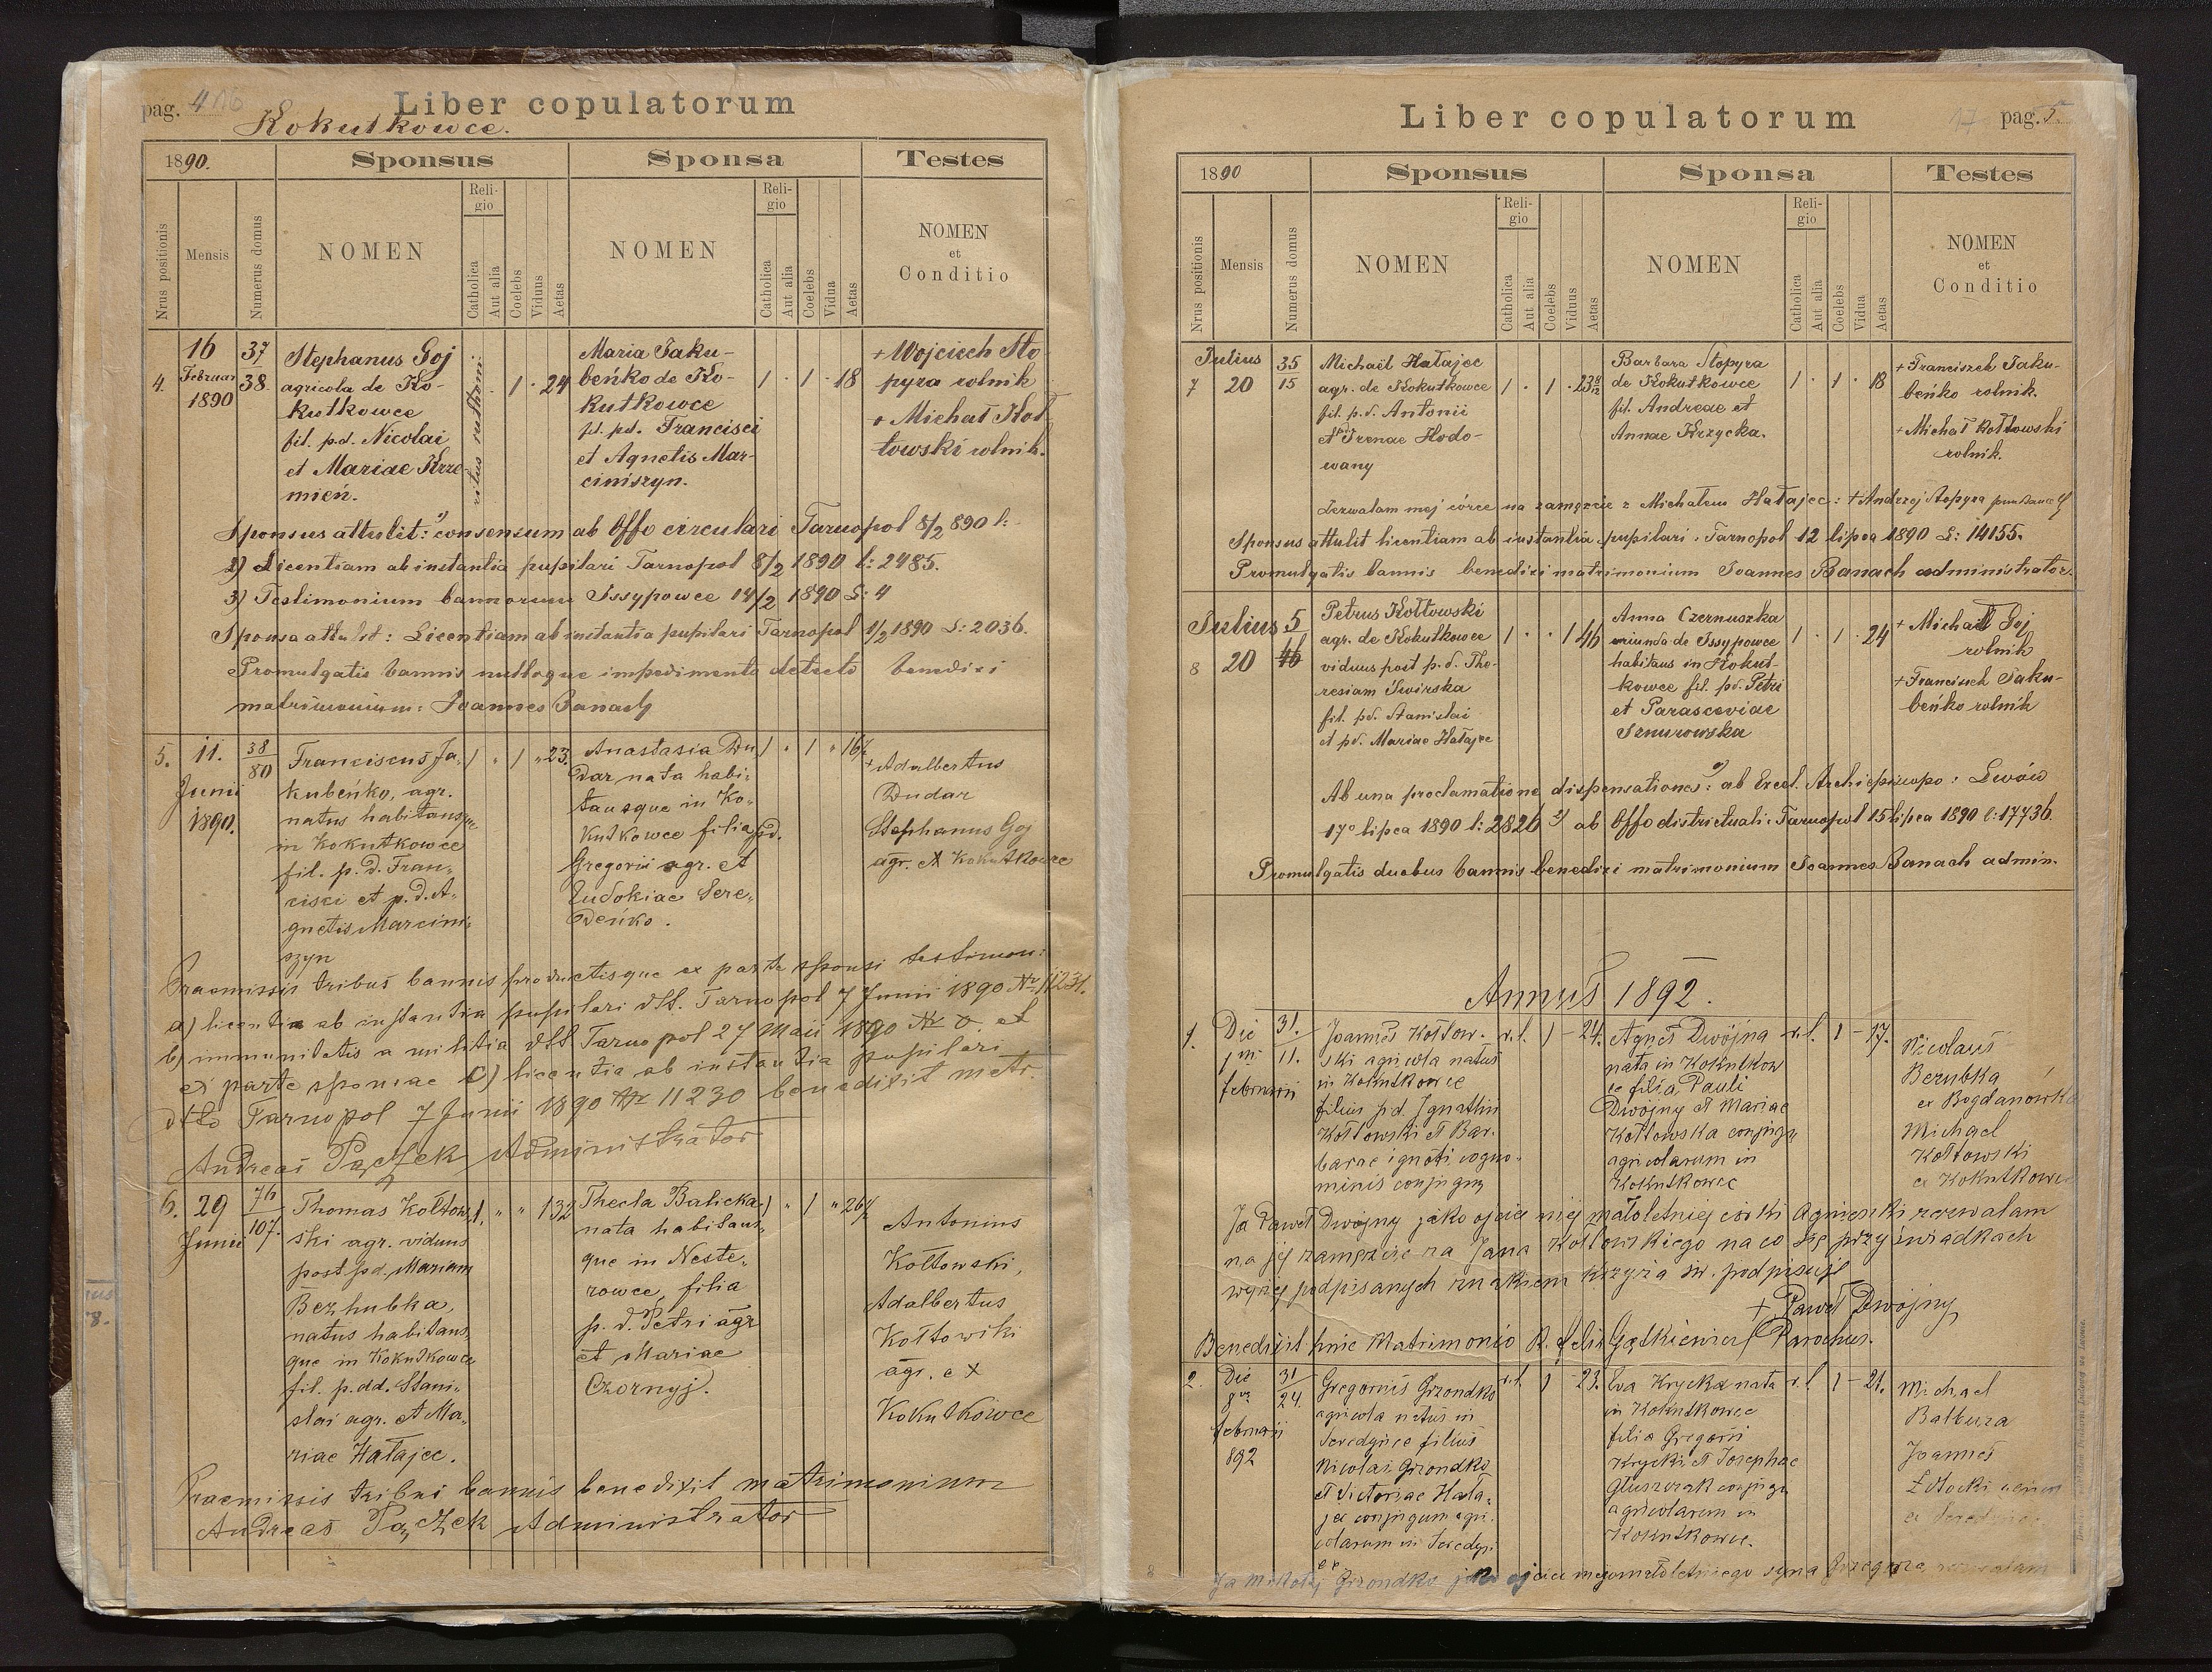 pag. 4
Liber copulatorum
Kokutkowce.
1890.
Sponsus
Sponsa
Testes
Nrus positionis
Mensis
Numerus domus
NOMEN
Religio
Catholica
Aut alia
Coelebs
Viduus
Aetas
NOMEN
Religio
Catholica
Aut alia
Coelebs
Vidua
Aetas
NOMEN
et
Conditio
4.
16
Februar
1890
37
38.
Stephanus Goj
agricola de Ko-
kutkowce
fil. p.d. Nicolai
et Mariae Krze-
mień.
ritus rutheni
1 · 24
Maria Jaku-
beńko de Ko-
kutkowce
fil. pd. Francisci
et Agnetis Mar-
ciniszyn.
1 · 1 · 18
+ Wojciech Sto-
pyra rolnik
+ Michał Koł-
towski rolnik.
Sponsus attulit: 1) consensum ab Offo circulari Tarnopol 8/2 890 l:
2) Licentiam ab instantia pupilari Tarnopol 8/2 1890 l: 2485.
3) Testimonium bannorum Issypowce 14/2 1890 L: 4
Sponsa attulit: Licentiam ab instantia pupilari Tarnopol 1/2 1890 L: 2036.
Promulgatis bannis nulloque impedimento detecto benedixi
matrimonium: Joannes Banach
5.
11.
Junii
1890.
38
80
Franciscus Ja-
kubeńko, agr.
natus habitansque
in Kokutkowce
fil. p.d. Fran-
cisci et p.d. A-
gnetis Marcini-
szyn
1 " 1 " 23.
Anastasia Du
dar nata habi-
tansque in Ko-
kutkowce filia pd.
Gregorii agr. et
Eudokiae Sere-
deńko.
1 " 1 " 16
+ Adalbertus
Dudar
Stephanus Goj
agr. ex Kokutkowce
Praemissis tribus bannis productisque ex parte sponsi testimon:
a) licentia ab instantia pupilari dtt. Tarnopol 7 Junii 1890 Nr 11231.
b) immunitatis a militia dtt Tarnopol 27 Maii 1890 Nr 0. et
ex parte sponsae c) licentia ab instantia pupilari
dtto Tarnopol 7 Junii 1890 Nr 11230 benedixit matr.
Andreas Pączek Administrator
6.
29
Junii
76
107.
Thomas Kołtow-
ski agr. viduus
post pd. Mariam
Bezhubka,
natus habitans-
que in Kokutkowce
fil. p.dd. Stani-
slai agr. et Ma-
riae Hałajec.
1. " " 1 32
Thecla Balicka
nata habitans-
que in Neste-
rowce, filia
p.d. Petri agr
et Mariae
Czornyj.
1 " 1 " 26
Antonius
Kołtowski,
Adalbertus
Kołtowski
agr. ex
Kokutkowce
Praemissis tribus bannis benedixit matrimonium
Andreas Pączek Administrator
Liber copulatorum
17 pag. 5
1890
Sponsus
Sponsa
Testes
Nrus positionis
Mensis
Numerus domus
NOMEN
Religio
Catholica
Aut alia
Coelebs
Viduus
Aetas
NOMEN
Religio
Catholica
Aut alia
Coelebs
Vidua
Aetas
NOMEN
et
Conditio
7
Julius
20
35
15
Michaël Hałajec
agr. de Kokutkowce
fil. p.d. Antonii
et Irenae Hodo-
wany
1 · 1 · 23
Barbara Stopyra
de Kokutkowce
fil. Andreae et
Annae Krzycka.
1 · 1 · 18
+ Franciszek Jaku-
beńko rolnik.
+ Michał Kołtowski
rolnik.
Zezwalam mej córce na zamęzcie z Michałem Hałajec: + Andrzej Stopyra
Sponsus attulit licentiam ab instantia pupilari. Tarnopol 12 lipca 1890 L: 14155.
Promulgatis bannis benedixi matrimonium Joannes Banach administrator
8
Julius
20
5
46
Petrus Kołtowski
agr. de Kokutkowce
viduus post p.d. The-
resiam Świrska
fil. pd. Stanislai
et pd. Mariae Hałajec
1 · · 1 46
Anna Czernuszka
oriunda de Issypowce
habitans in Kokut-
kowce fil. pd. Petri
et Parasceviae
Sznurowska
1 · 1 · 24
+ Michał Goj
rolnik
+ Franciszek Jaku-
beńko rolnik
Ab una proclamatione dispensationes: 1) ab Excel. Archiepiscopo: Lwów
17º lipca 1890 l: 2826 2) ab Offo districtuali: Tarnopol 15 lipca 1890 l: 17736.
Promulgatis duabus bannis benedixi matrimonium Joannes Banach admin.
Annus 1892.
1.
Die
1ma
februarii
31.
11.
Joannes Kołtow-
ski agricola natus
in Kokutkowce
filius p.d. Ignatii
Kołtowski et Bar-
barae ignoti cogno-
minis conjugum
r.l. 1 – 24.
Agnes Dwójna
nata in Kokutkow
ce filia Pauli
Dwójny et Mariae
Kołtowska conjugum
agricolarum in
Kokutkowce
r.l. 1 – 17.
Nicolaus
Bezubka
ex Bogdanówka
Michael
Kołtowski
ex Kokutkowce
Ja Paweł Dwójny jako ojciec mej małoletniej córki Agnieszki zezwalam
na jej zamęzcie za Jana Kołtowskiego na co się przy świadkach
wyżej podpisanych znakiem krzyża św. podpisuję
+ Paweł Dwójny
Benedixit huic Matrimonio R. Felix Gątkiewicz Parochus.
2.
Die
februarii
892
31
24.
Gregorius Grzondko
agricola natus in
Seredynce filius
Nicolai Grzondko
et Victoriae Hała-
jec conjugum agri-
colarum in Seredyn
ce
r.l. 1 – 23.
Eva Krycka nata
in Kokutkowce
filia Gregorii
Krycki et Josephae
Głuszczak conjugum
agricolarum in
Kokutkowce.
r.l. 1 – 21.
Michael
Bałtura
Joannes
Ja Mikołaj Grzondko jako ojciec mego małoletniego syna Grzegorza zezwalam